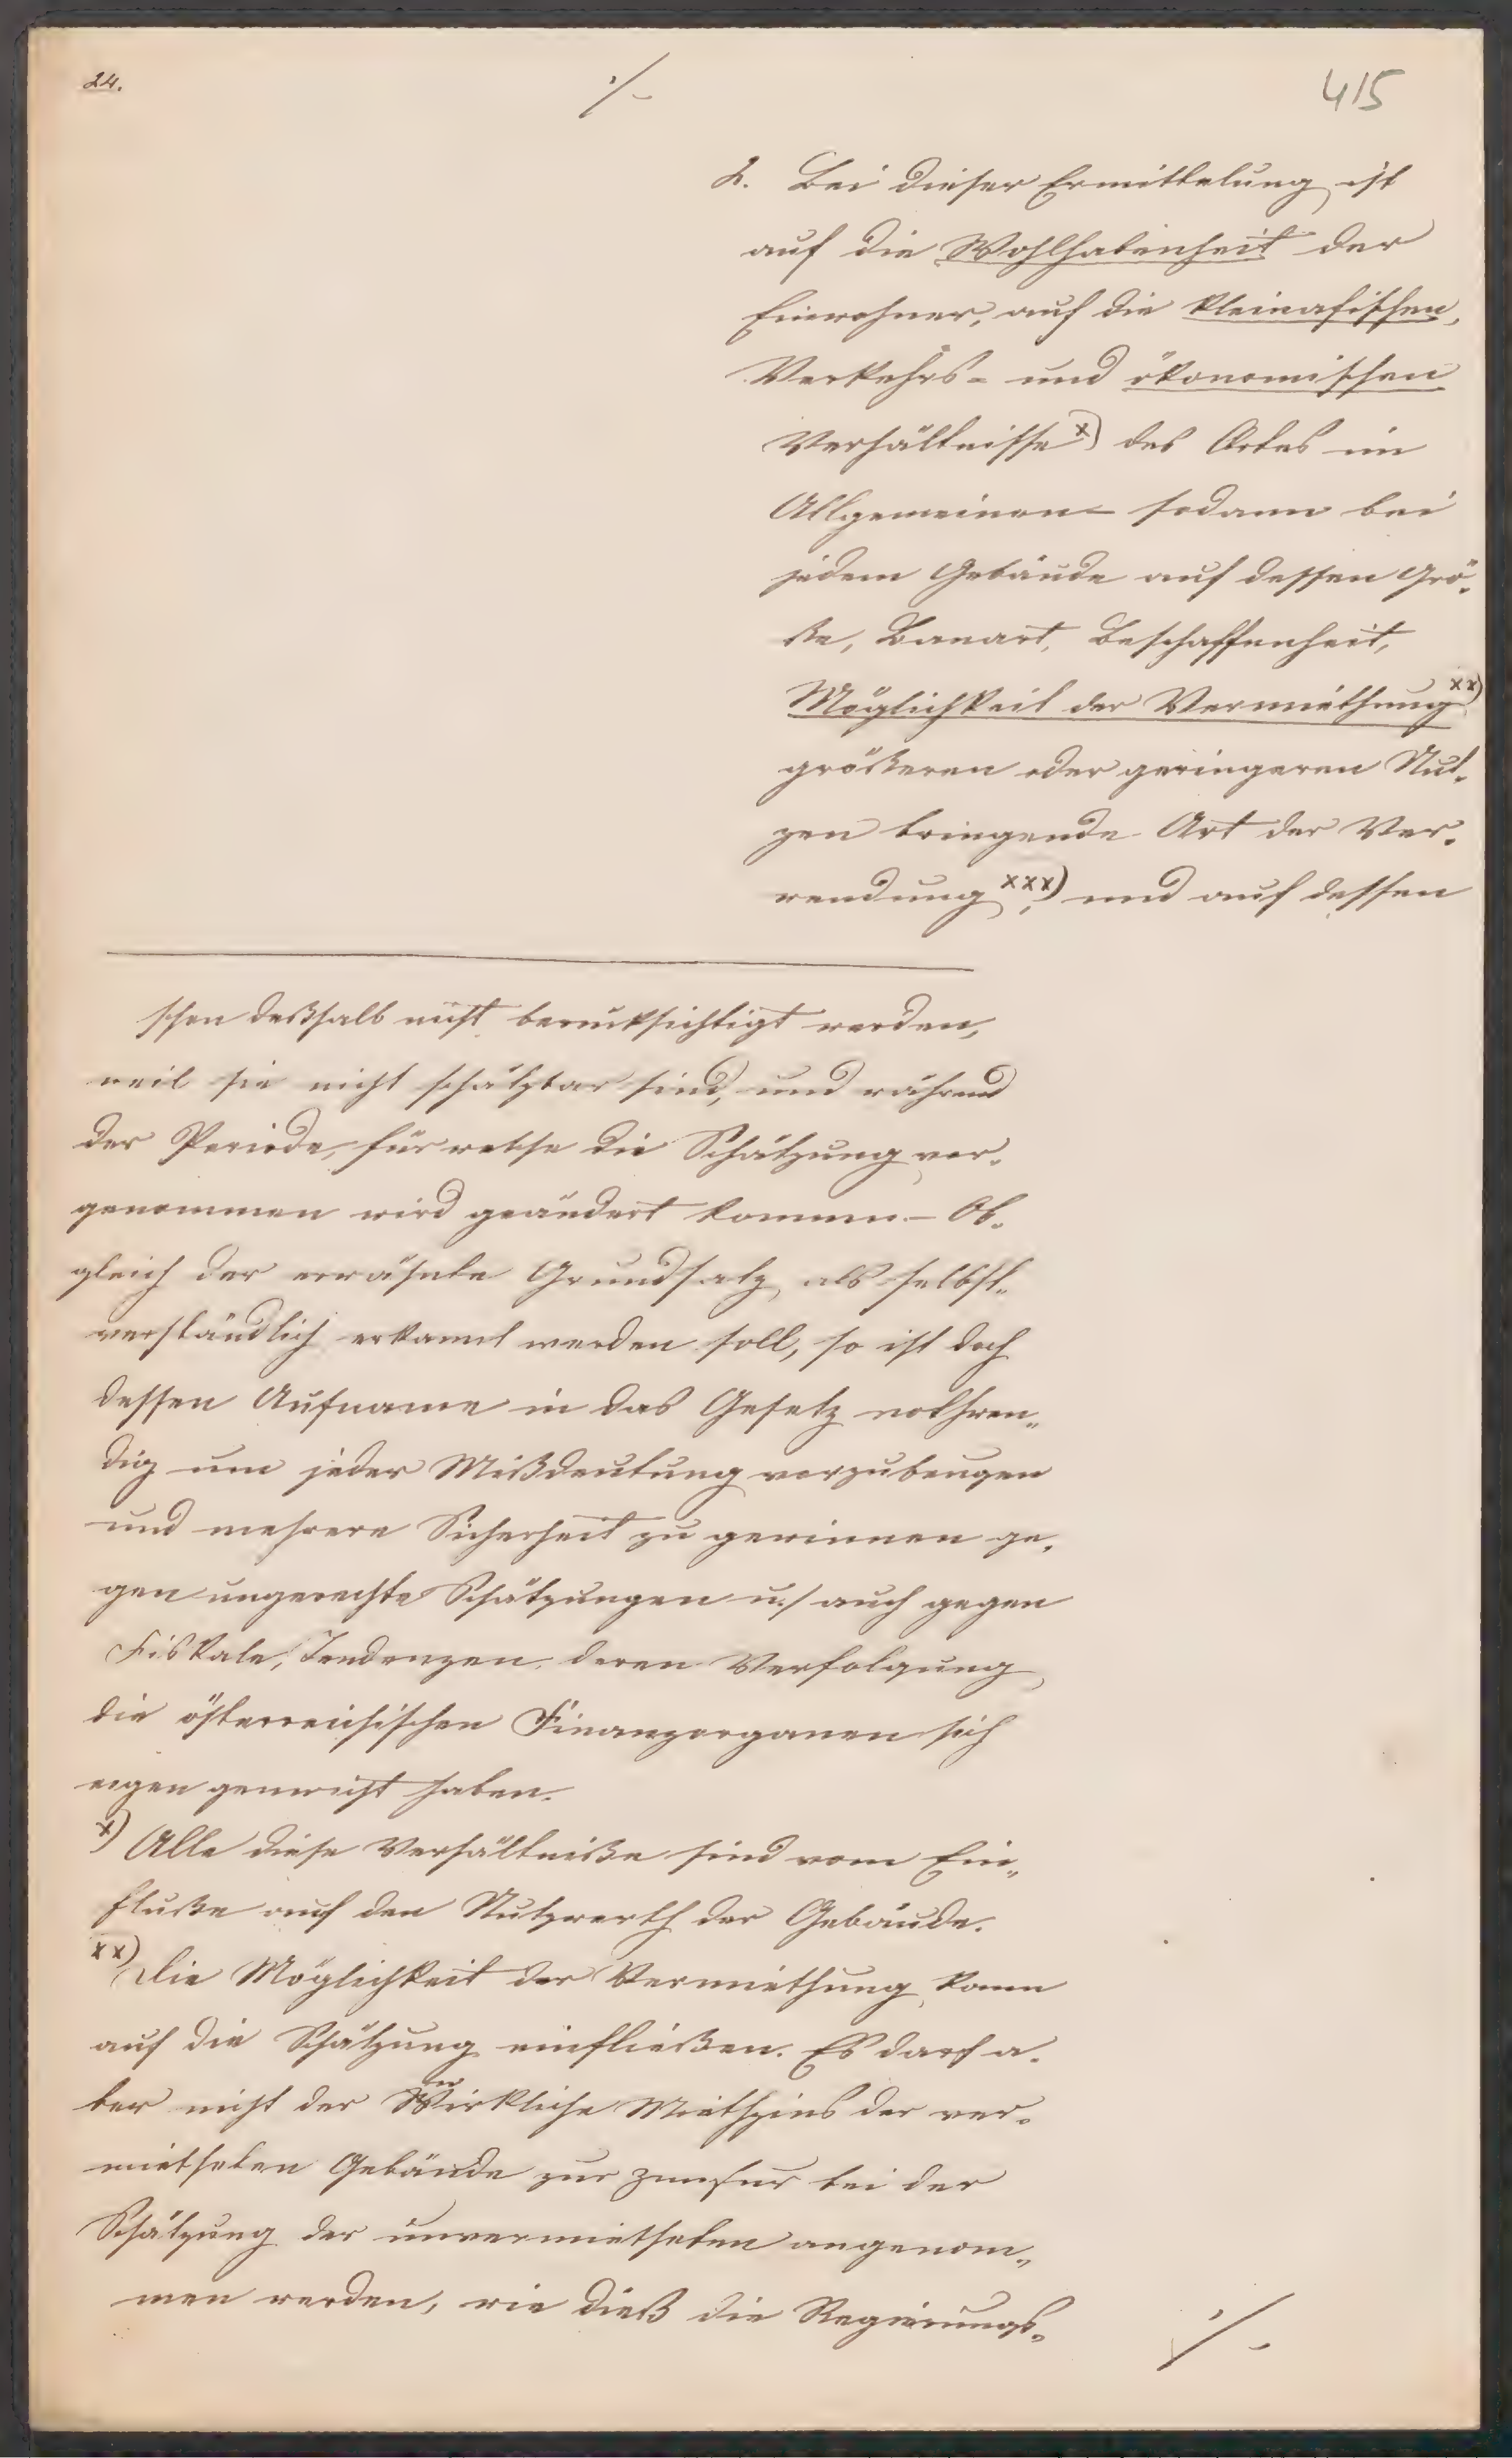 24.
·/-
415
2. Bei dieser Ermittelung ist
auf die Wohlhabenheit der
Einwohner, auf die
Verkehrs- und ökonomischen
Verhältnisse x) des Ortes im
Allgemeinen - sodann bei
jedem Gebäude auf dessen Grö-
ße, Bauart, Beschaffenheit,
Möglichkeit der Vermiethung xx)
größeren oder geringeren Nut-
zen bringende Art der Ver-
wendung xxx), und auf dessen
schen deßhalb nicht berücksichtigt werden,
weil sie nicht schätzbar sind, und während
der Periode, für welche die Schätzung vor-
genommen wird geändert kommen - Ob-
gleich der erwähnte Grundsatz als selbst-
verständlich erkannt werden soll, so ist doch
dessen Aufname in das Gesetz nothwen-
dig um jeder Mißdeutung vorzubeugen
und mehrere Sicherheit zu gewinnen ge-
gen ungerechte Schätzungen u./ auch gegen
Fiskale, Tendenzen deren Verfolgung
die österreichischen Finanzorganen sich
eigen gemacht haben.
x) Alle diese Verhältniße sind vom Ein-
fluße auf den Nutzwerth der Gebäude.
xx) Die Möglichkeit der Vermiethung kann
auf die Schätzung einfließen. Es darf a-
ber nicht der wirkliche Miethzins der ver-
mietheten Gebäude zur bei der
Schätzung der unvermietheten angenom-
men werden, wie dieß die Regierungs-
·/-